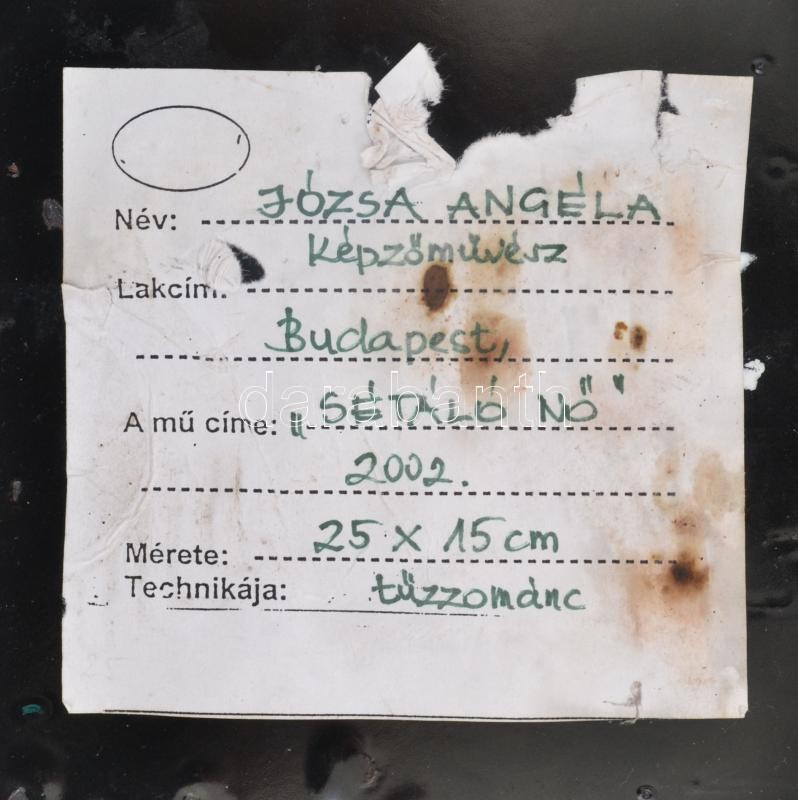 Név: JÓZSA ANGÉLA
Képzőművész
Lakcím:
Budapest,
A mű címe: „SÉTÁLÓ NŐ"
darabanth
2002.
Mérete: 25 x 15 cm
Technikája: tűzzománc